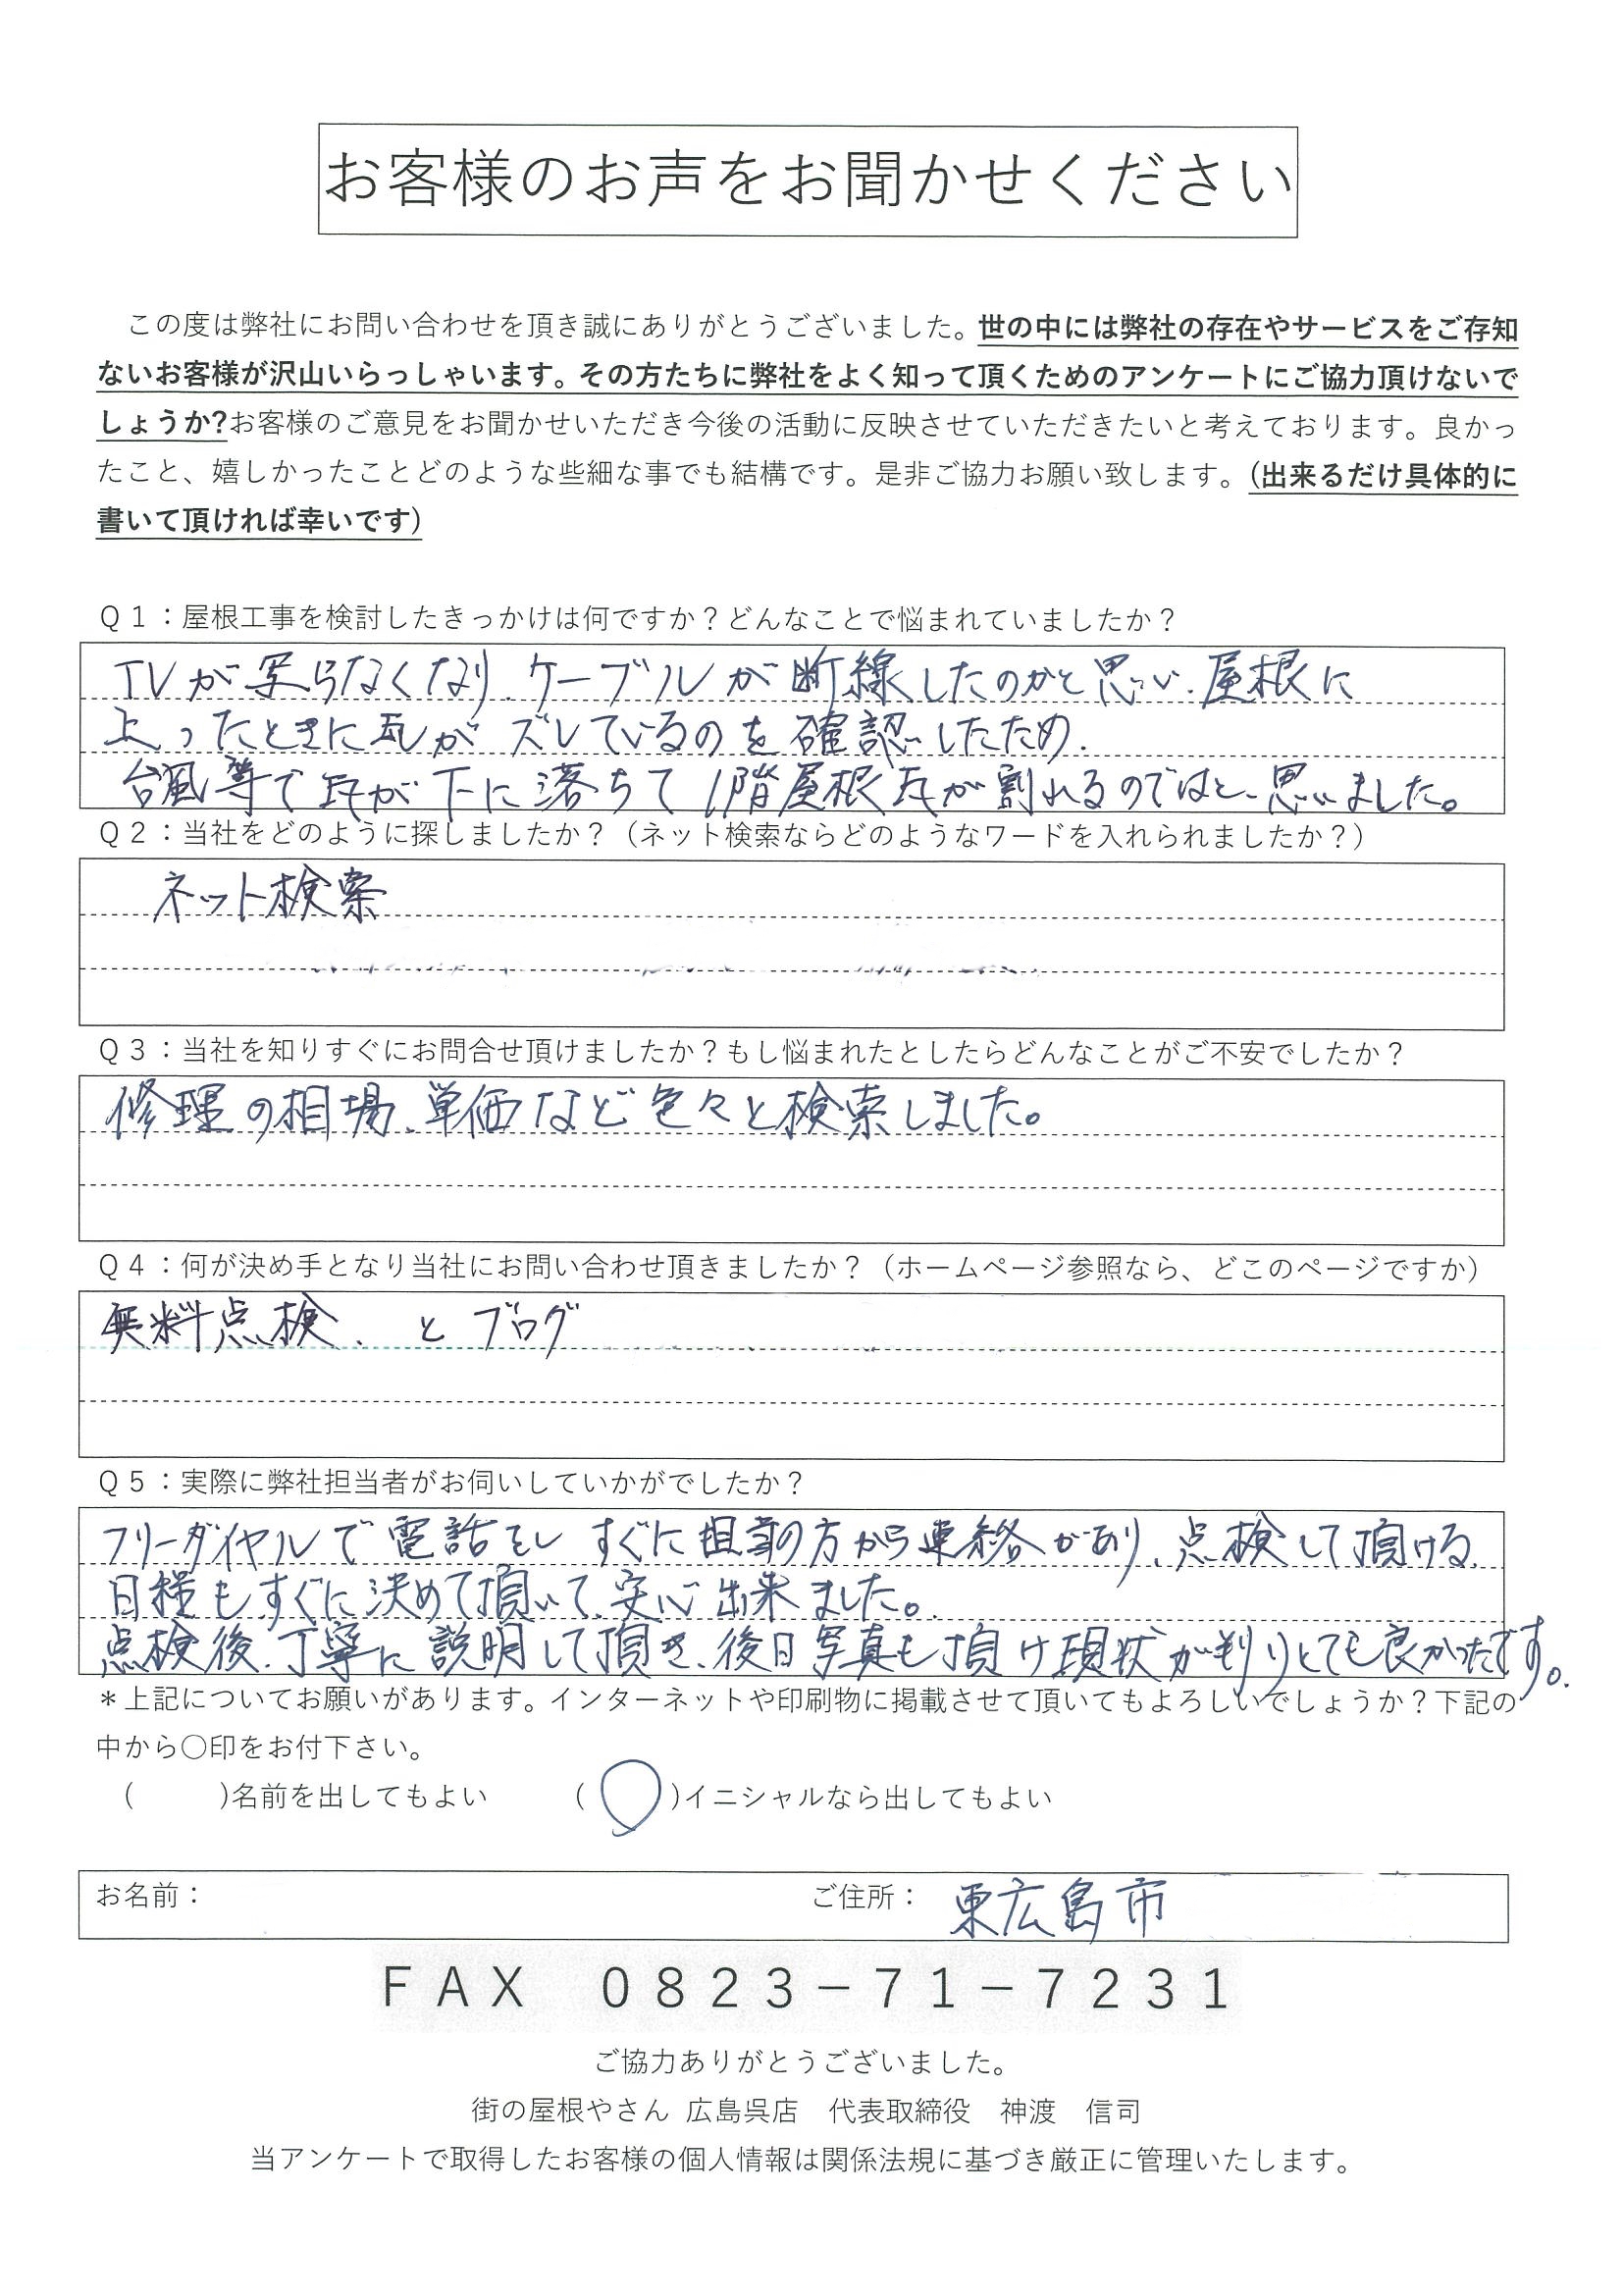 お客様のお声をお聞かせください
この度は弊社にお問い合わせを頂き誠にありがとうございました。世の中には弊社の存在やサービスをご存知
ないお客様が沢山いらっしゃいます。その方たちに弊社をよく知って頂くためのアンケートにご協力頂けないで
しょうか?お客様のご意見をお聞かせいただき今後の活動に反映させていただきたいと考えております。良かっ
たこと、嬉しかったことどのような些細な事でも結構です。是非ご協力お願い致します。(出来るだけ具体的に
書いて頂ければ幸いです)
Q1：屋根工事を検討したきっかけは何ですか？どんなことで悩まれていましたか？
TVが写らなくなり、ケーブルが断線したのかと思い、屋根に
上ったときに瓦がズレているのを確認したため.
台風等で瓦が下に落ちて1階屋根瓦が割れるのではと、思いました。
Q2：当社をどのように探しましたか？（ネット検索ならどのようなワードを入れられましたか？）
ネット検索
Q3：当社を知りすぐにお問合せ頂けましたか？もし悩まれたとしたらどんなことがご不安でしたか？
修理の相場、単価など色々と検索しました。
Q4：何が決め手となり当社にお問い合わせ頂きましたか？（ホームページ参照なら、どこのページですか）
無料点検、とブログ
Q5：実際に弊社担当者がお伺いしていかがでしたか？
フリーダイヤルで電話をしすぐに担当の方から連絡があり、点検して頂ける
日程もすぐに決めて頂いて、安心出来ました。
点検後、丁寧に説明して頂き、後日写真も頂け現状が判りとても良かったです。
＊上記についてお願いがあります。インターネットや印刷物に掲載させて頂いてもよろしいでしょうか？下記の
中から〇印をお付下さい。
(　　)名前を出してもよい　　(〇)イニシャルなら出してもよい
お名前：　　ご住所：東広島市
FAX　0823－71－7231
ご協力ありがとうございました。
街の屋根やさん 広島呉店　代表取締役　神渡　信司
当アンケートで取得したお客様の個人情報は関係法規に基づき厳正に管理いたします。